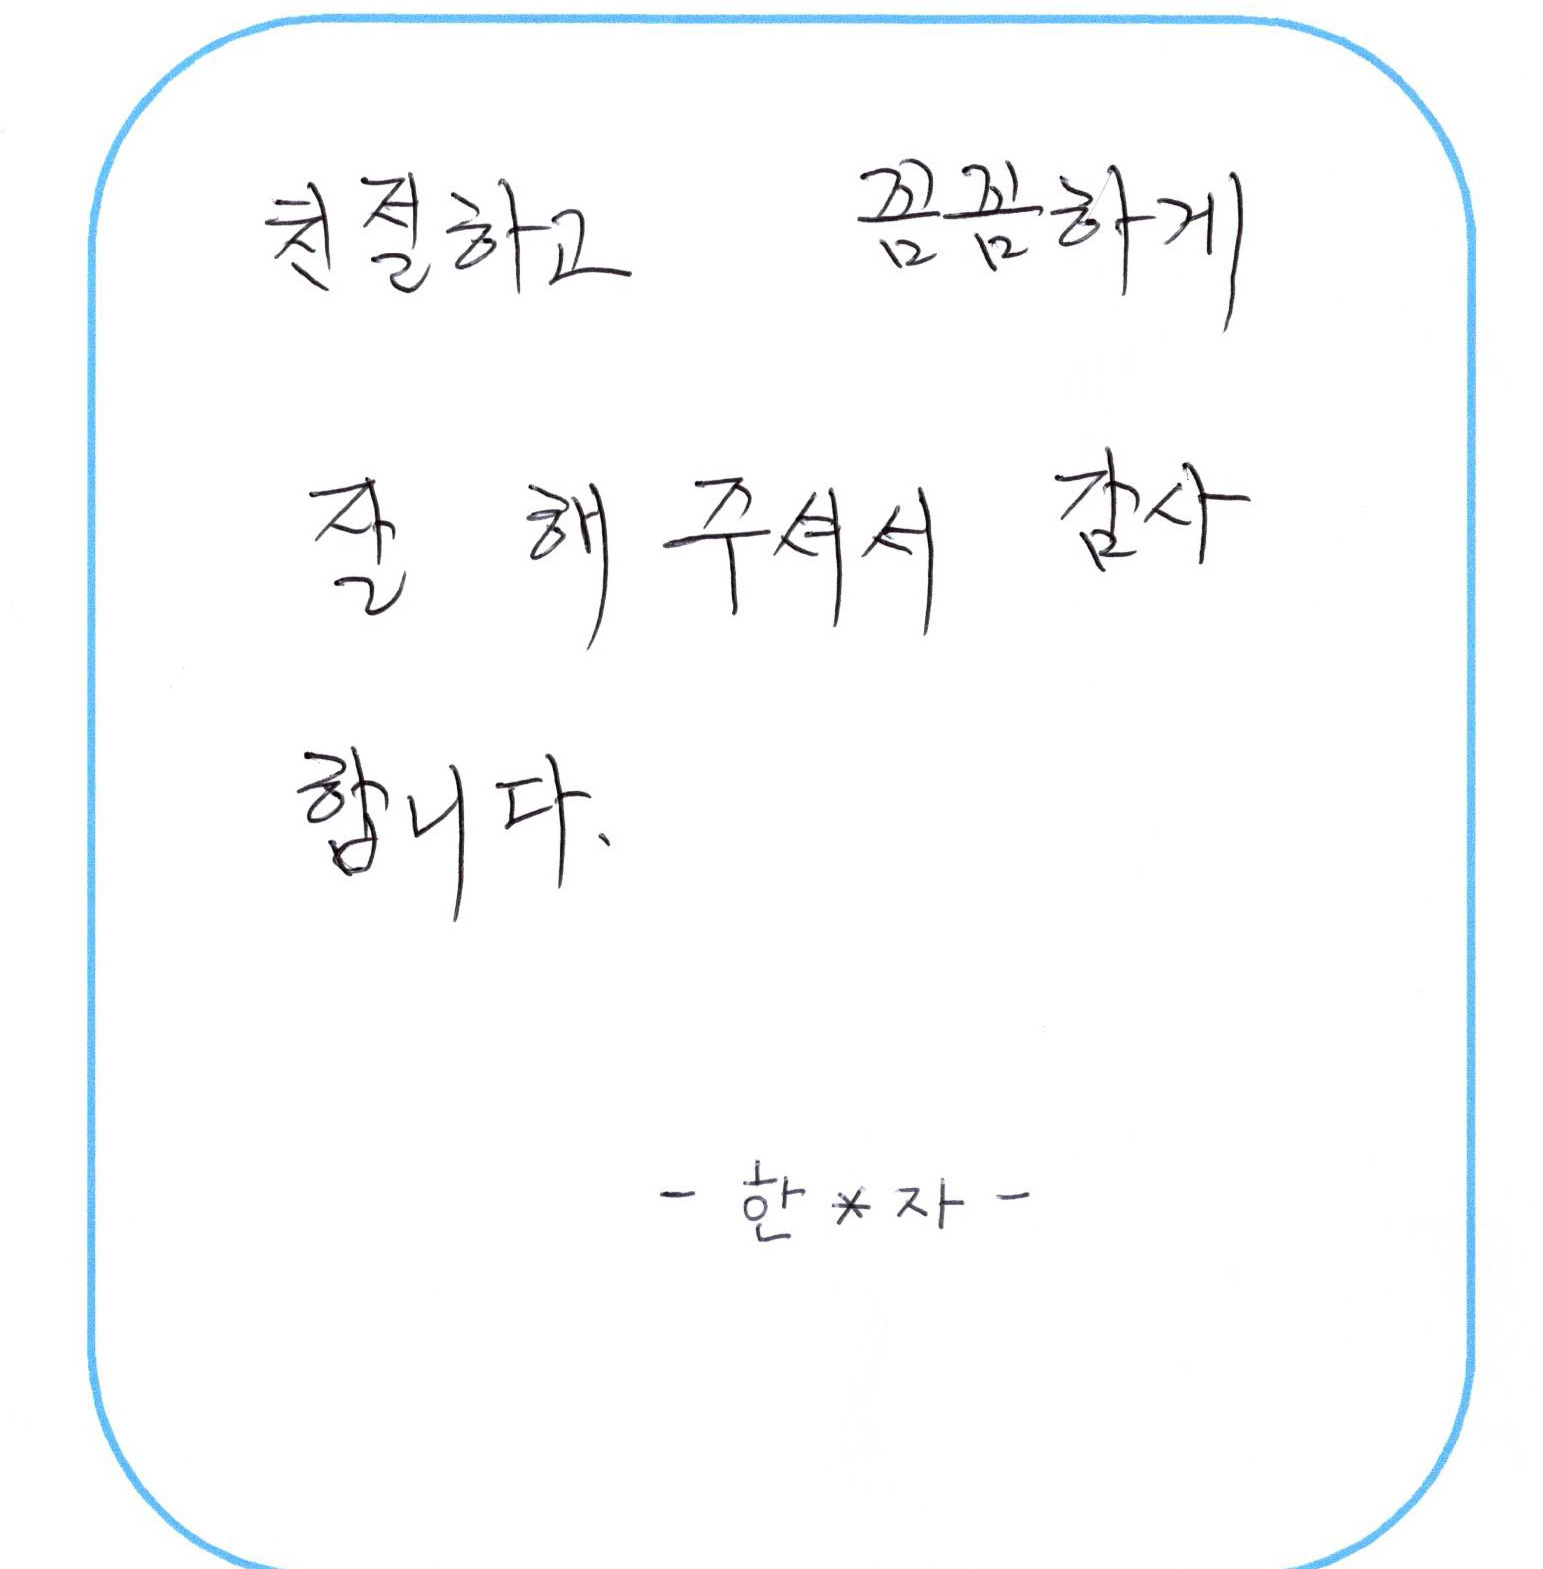 친절하고 꼼꼼하게
잘 해 주셔서 감사
합니다.
- 한*자 -